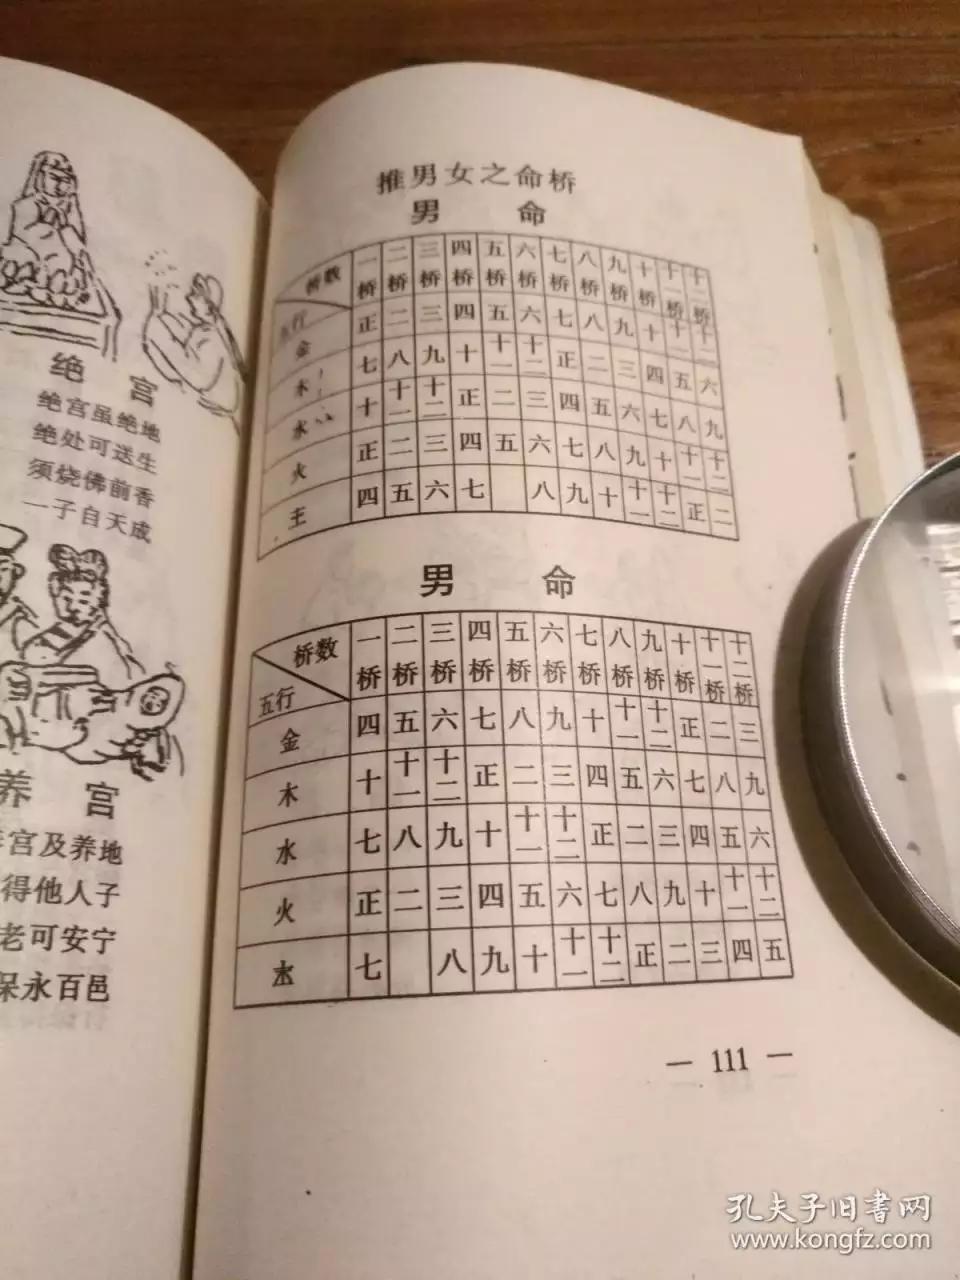 绝 宫
绝宫虽绝地
绝处可送生
须烧佛前香
一子自天成
养 宫
宫及养地
得他人子
老可安宁
保永百邑
推男女之命桥
男 命
桥数 五行 一桥 二桥 三桥 四桥 五桥 六桥 七桥 八桥 九桥 十桥 十一桥 十二桥
金 正 二 三 四 五 六 七 八 九 十 十一 十二
木 七 八 九 十 十一 十二 正 二 三 四 五 六
水 十 十一 十二 正 二 三 四 五 六 七 八 九
火 正 二 三 四 五 六 七 八 九 十 十一 十二
王 四 五 六 七 八 九 十 十一 十二 正 二
男 命
桥数 五行 一桥 二桥 三桥 四桥 五桥 六桥 七桥 八桥 九桥 十桥 十一桥 十二桥
金 四 五 六 七 八 九 十 十一 十二 正 二 三
木 十 十一 十二 正 二 三 四 五 六 七 八 九
水 七 八 九 十 十一 十二 正 二 三 四 五 六
火 正 二 三 四 五 六 七 八 九 十 十一 十二
七 八 九 十 十一 十二 正 二 三 四 五
— 111 —
孔夫子旧书网
www.kongfz.com